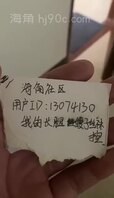 海角 hj90c.com
海角社区
用户ID:13074130
我的长腿嫂子丝袜
控